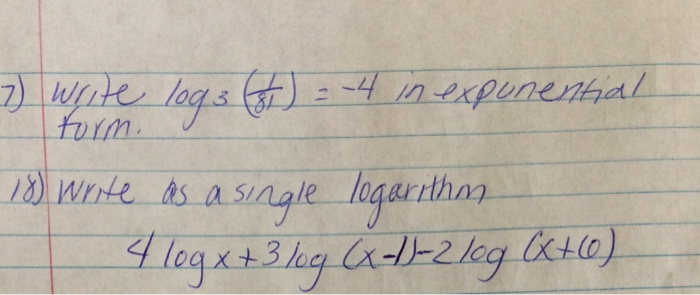 7) Write log₃ (1/81) = -4 in exponential
form.
18) Write as a single logarithm
4 log x + 3 log (x-1) - 2 log (x+6)